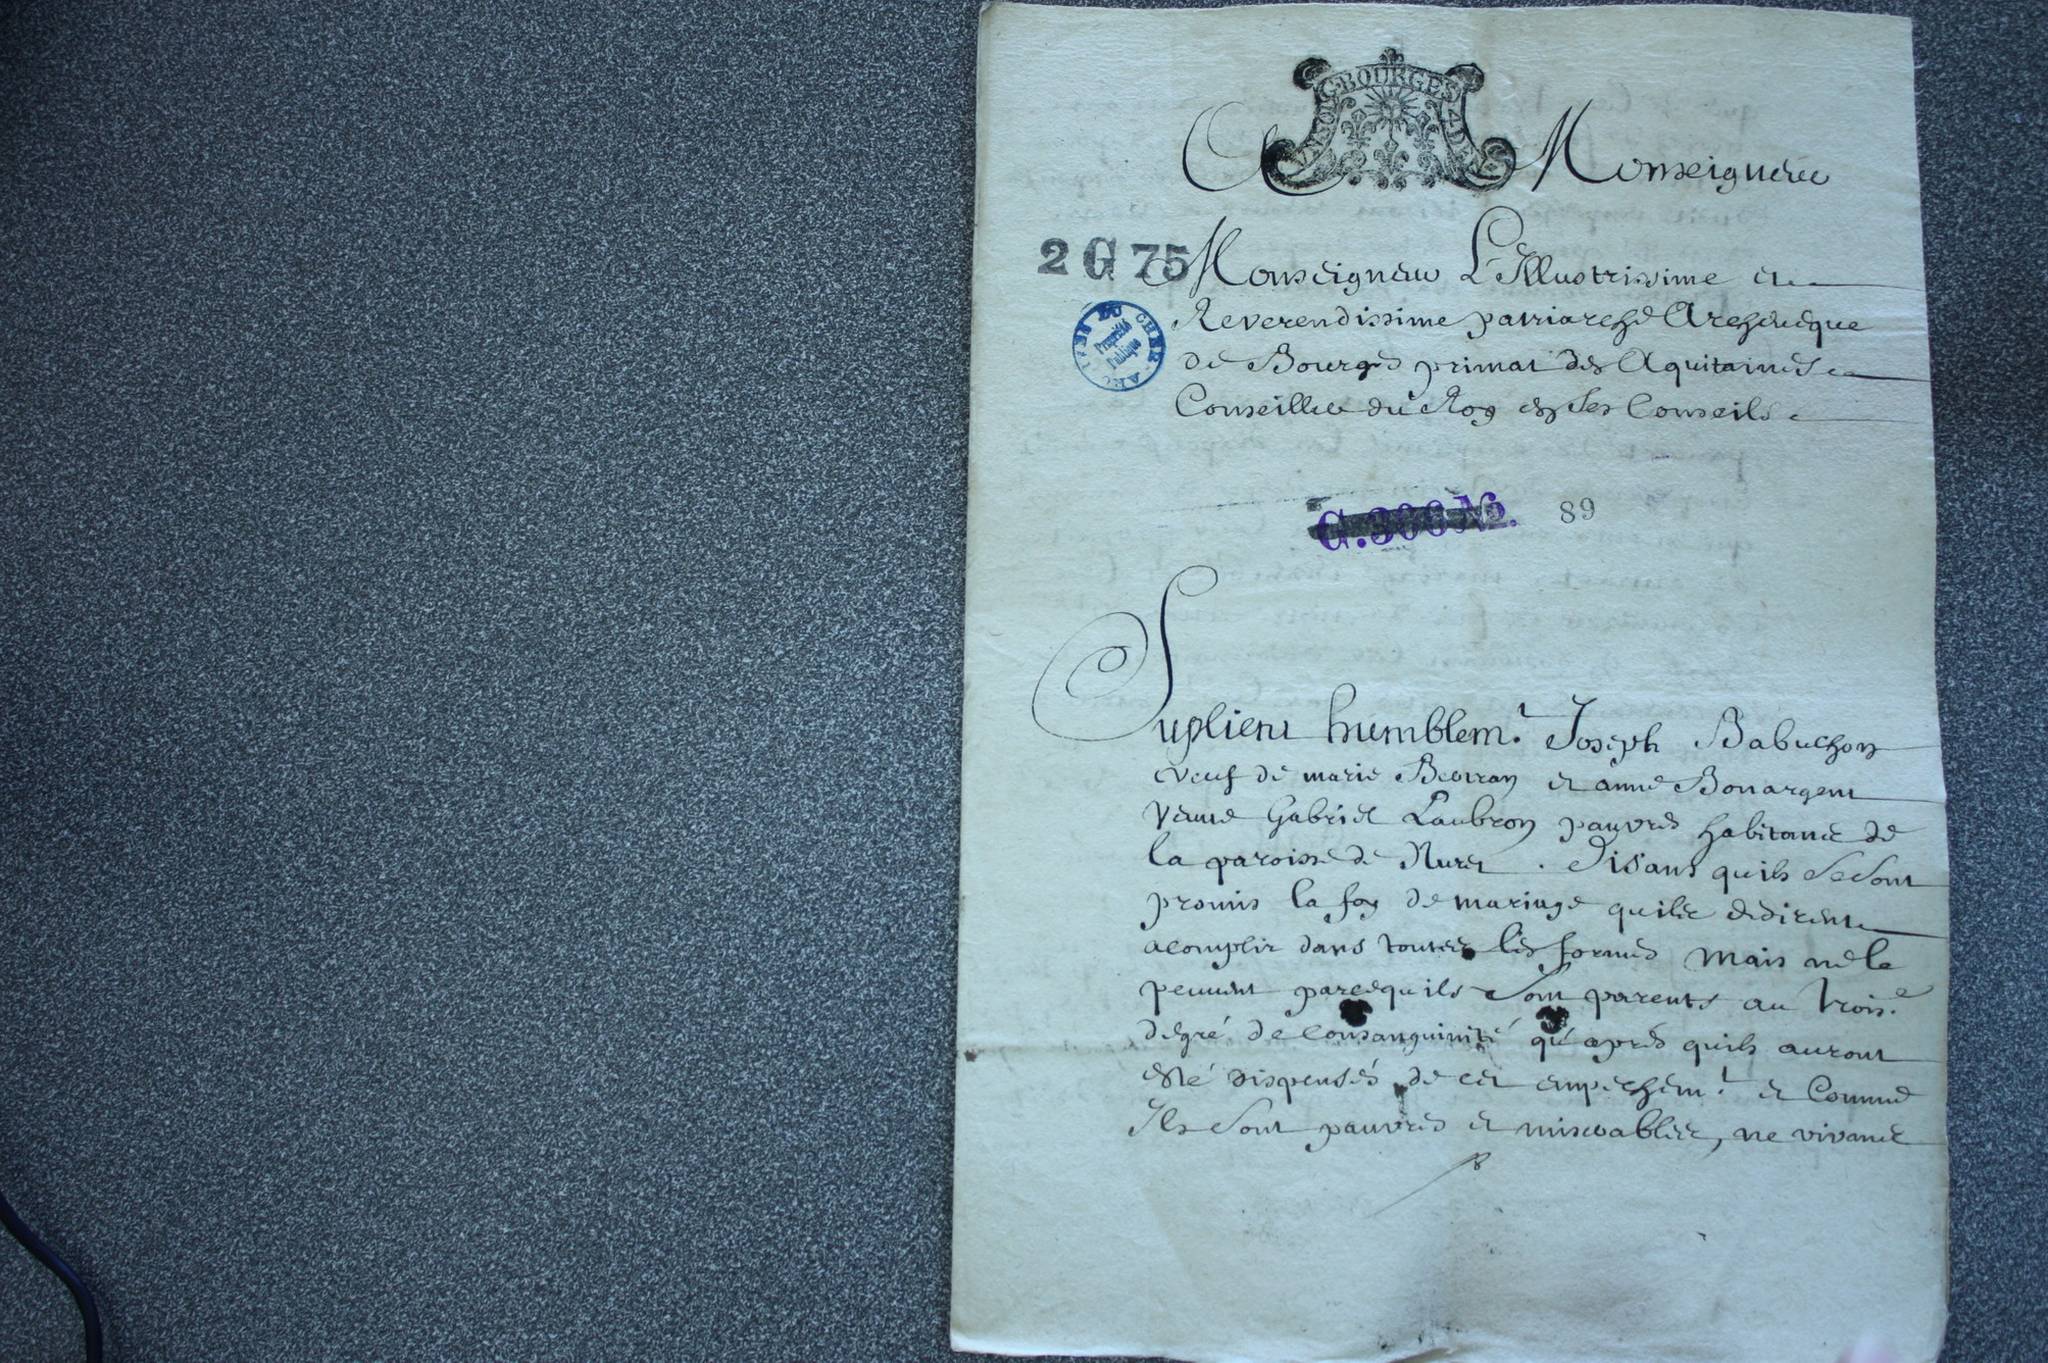 G BOURGES 4 DEN
A Monseigneur
2 G 75
Monseigneur L'Illustrissime et
Reverendissime patriarche Archeueque
de Bourges primat des Aquitaines
Conseiller du Roy en ses Conseils
ARCHIVES DU CHER
Propriété
Publique
G. 300 N°. 89
Suplient humblemt. Joseph Babuchon
veuf de marie Beurran et anne Bonargent
veuue Gabriel Laubron pauvres habitants de
la paroisse de Nuret . Disans quils se sont
promis la foy de mariage quils desirent
acomplir dans toutes les formes mais ne le
peuuent parcequils sont parents au trois.e
degré de consanguinité qu'apres quils auront
esté dispensés de cet empechemt. et Comme
Ils sont pauvres et miserables, ne vivants